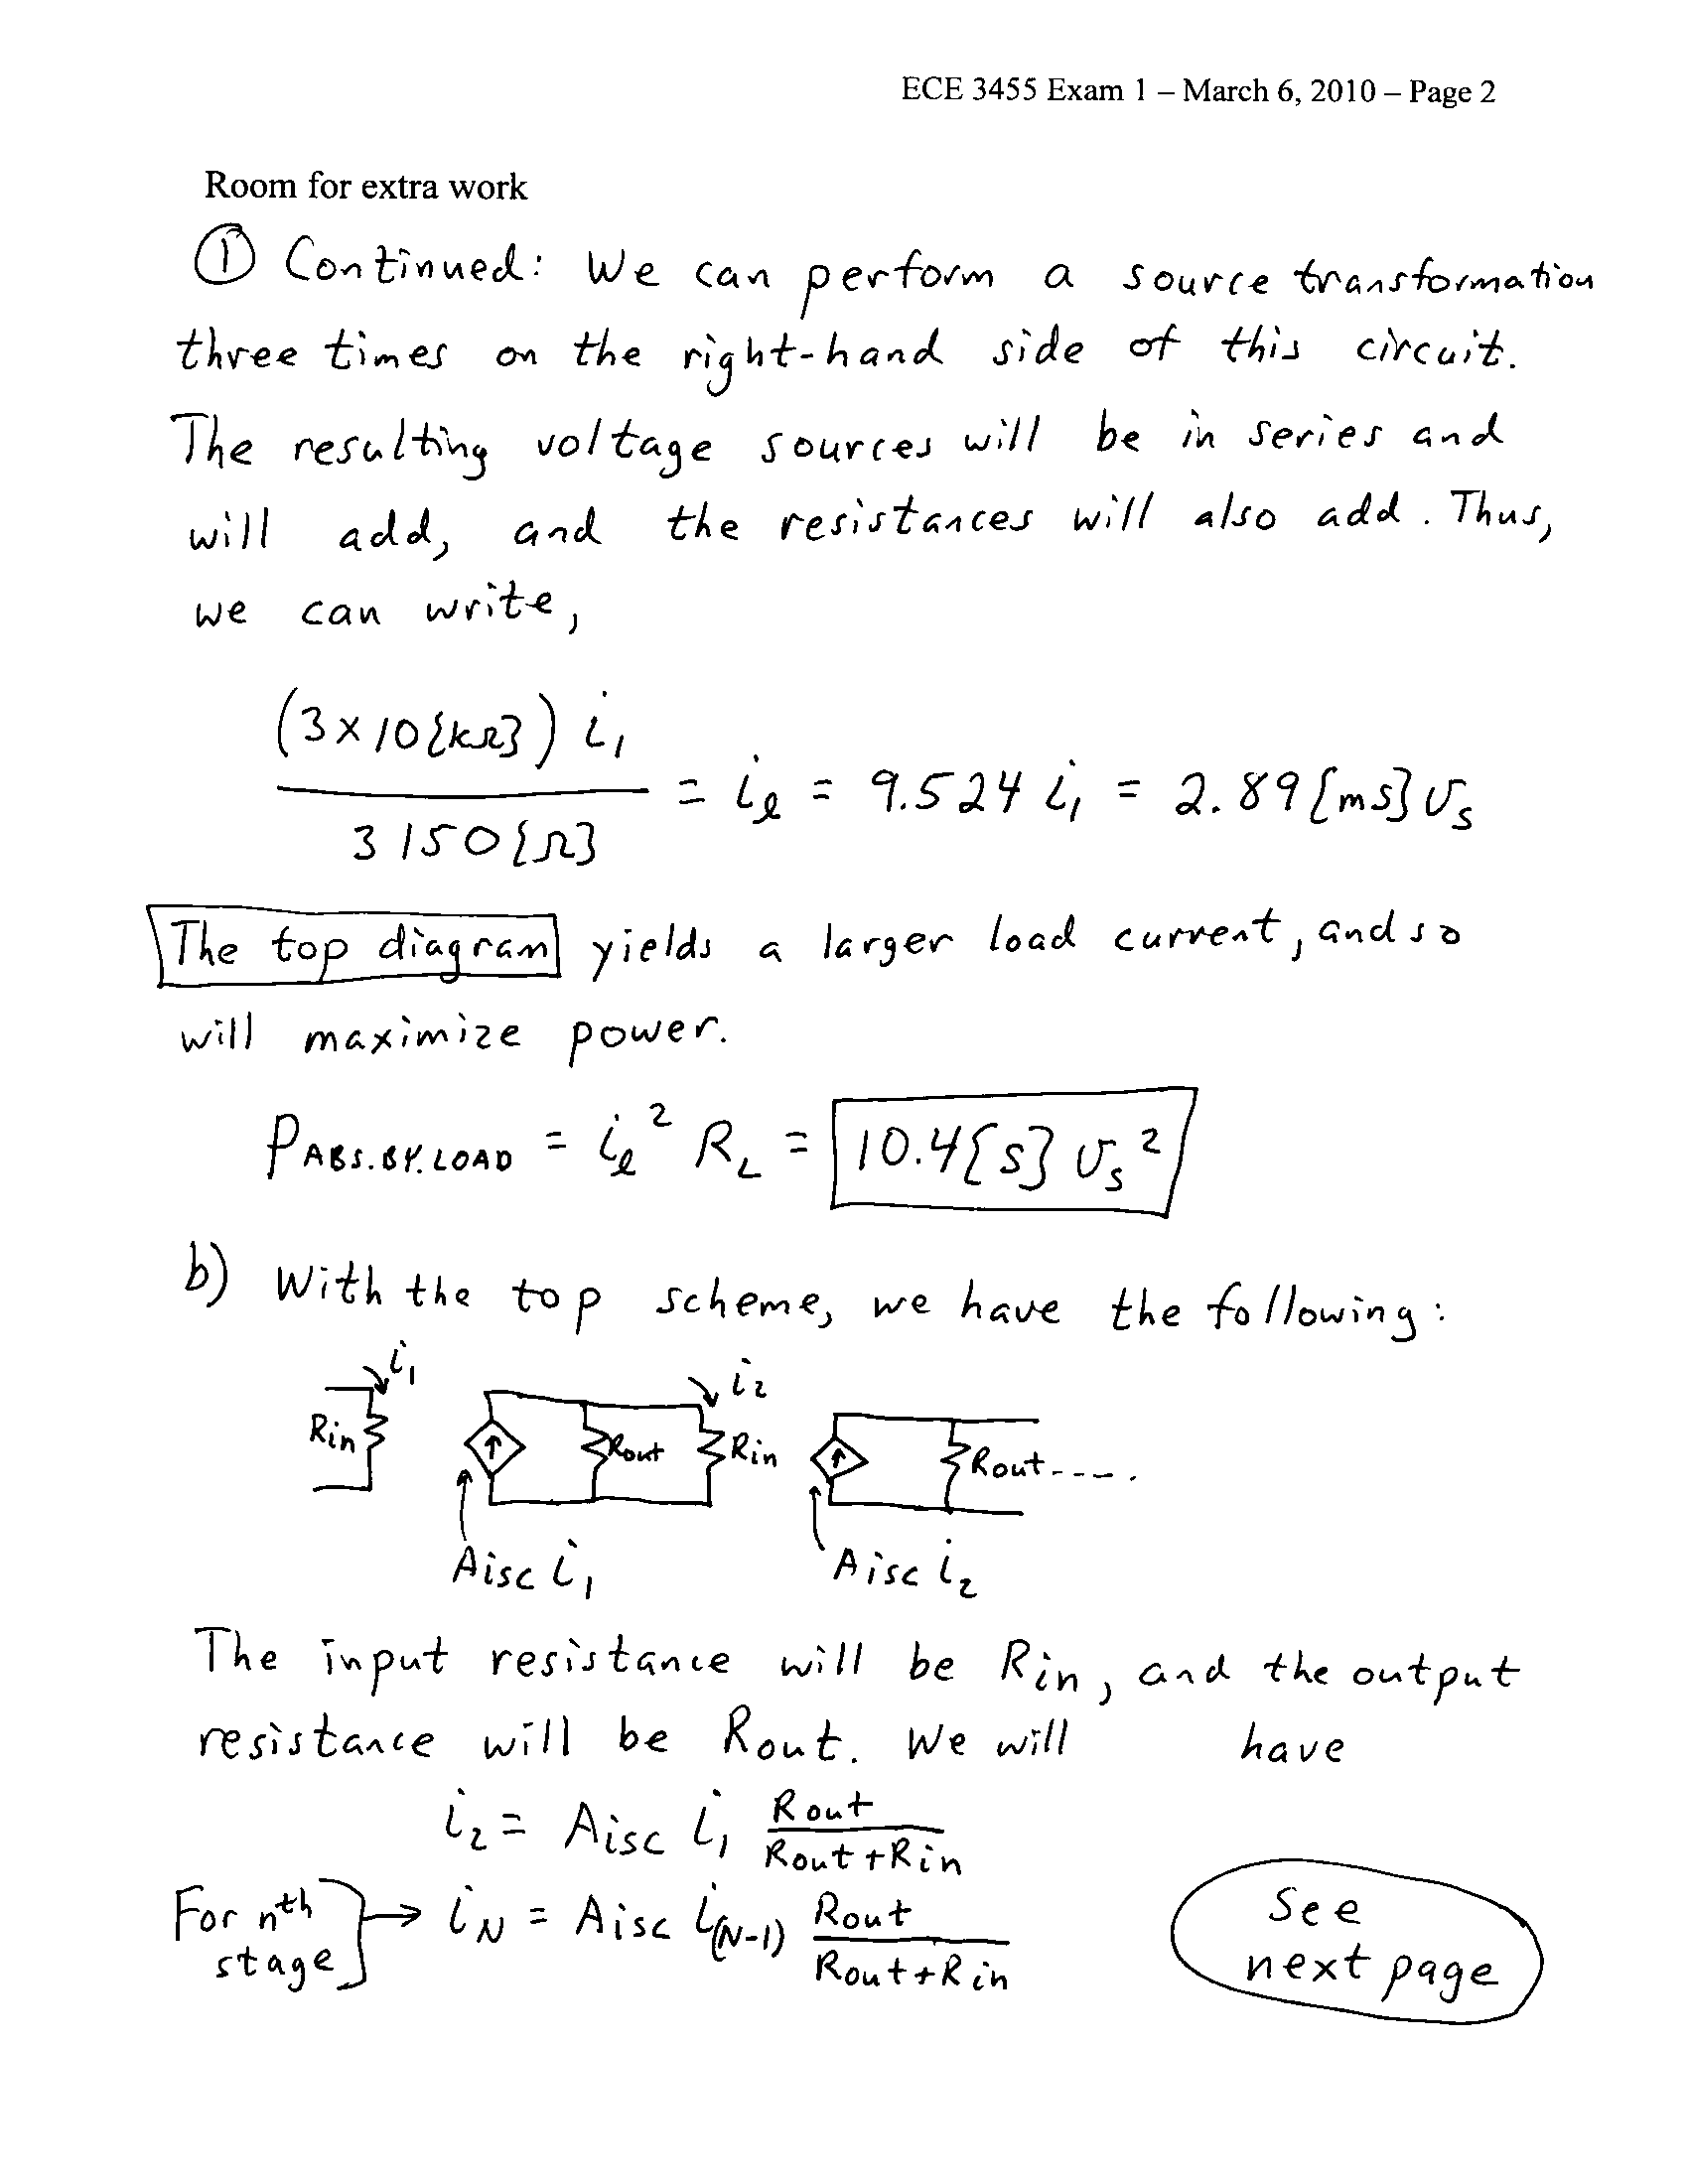 ECE 3455 Exam 1 – March 6, 2010 – Page 2
Room for extra work
① Continued: We can perform a source transformation
three times on the right-hand side of this circuit.
The resulting voltage sources will be in series and
will add, and the resistances will also add. Thus,
we can write,
(3×10{kΩ}) i₁
3150{Ω}
= iℓ = 9.524 i₁ = 2.89{mS}vₛ
The top diagram yields a larger load current, and so
will maximize power.
PABS.BY.LOAD = iℓ² RL = 10.4{S} vₛ²
b) With the top scheme, we have the following:
i₁
i₂
Rin
Rout
Rin
Rout-----.
Aisc i₁
Aisc i₂
The input resistance will be Rin, and the output
resistance will be Rout. We will have
i₂ = Aisc i₁ Rout
Rout+Rin
For nth
stage
→ iN = Aisc i(N-1) Rout
Rout+Rin
See
next page